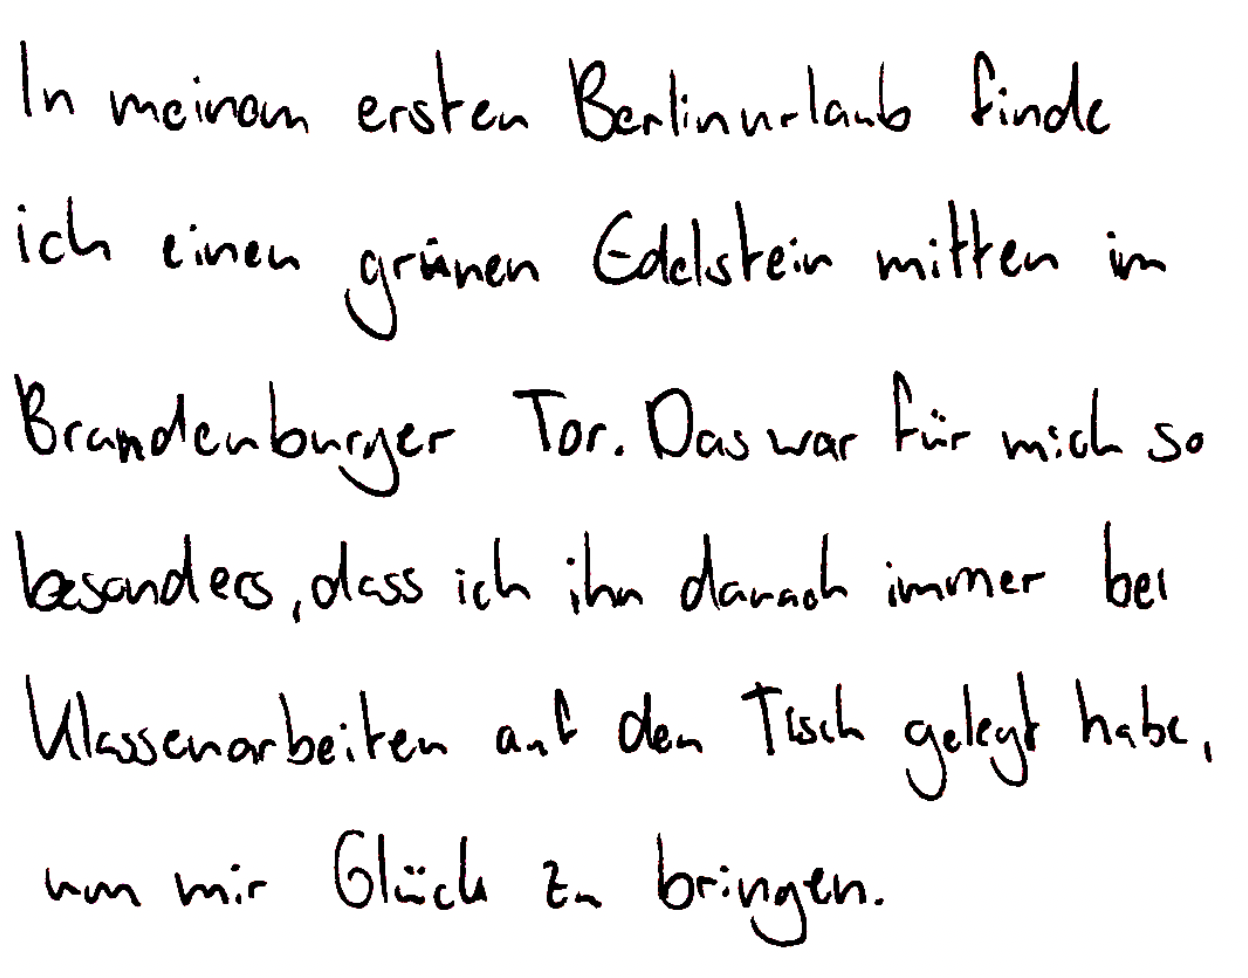 In meinem ersten Berlinurlaub finde
ich einen grünen Edelstein mitten im
Brandenburger Tor. Das war für mich so
besonders, dass ich ihn danach immer bei
Klassenarbeiten auf den Tisch gelegt habe,
um mir Glück zu bringen.